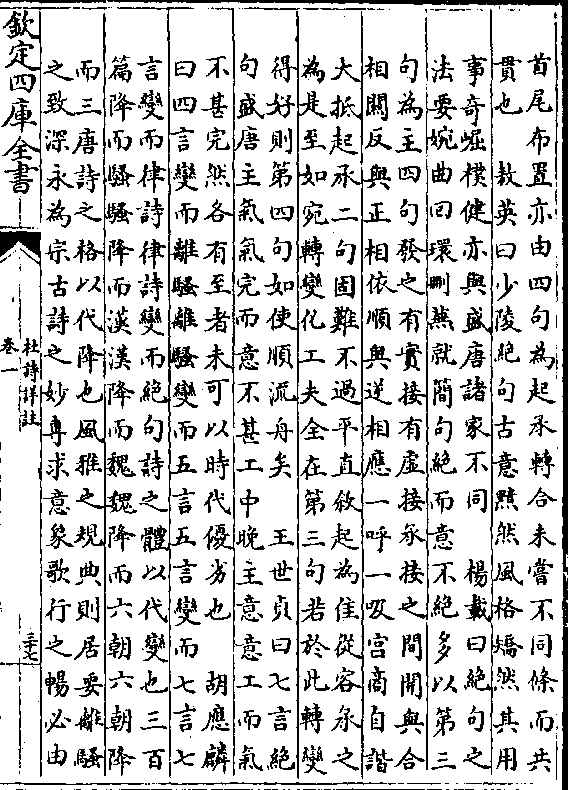 首尾布置亦由四句為起承轉合未嘗不同條而共
貫也　敖英曰少陵絕句古意黯然風格矯然其用
事奇崛樸健亦與盛唐諸家不同　楊載曰絕句之
法要婉曲回環刪蕪就簡句絕而意不絕多以第三
句為主四句發之有實接有虛接承接之間開與合
相關反與正相依順與逆相應一呼一吸宮商自諧
大抵起承二句固難不過平直敘起為佳從容承之
為是至如宛轉變化工夫全在第三句若於此轉變
得好則第四句如使順流舟矣　王世貞曰七言絕
句盛唐主氣氣完而意不甚工中晚主意意工而氣
不甚完然各有至者未可以時代優劣也　胡應麟
曰四言變而離騷離騷變而五言五言變而七言七
言變而律詩律詩變而絕句詩之體以代變也三百
篇降而騷騷降而漢漢降而魏魏降而六朝六朝降
而三唐詩之格以代降也風雅之規典則居要離騷
之致深永為宗古詩之妙專求意象歌行之暢必由
欽定四庫全書
杜詩詳註
卷一
三十七